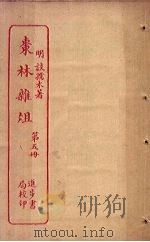 明談孺木著
棗林雜俎
第五冊
進步書
局校印